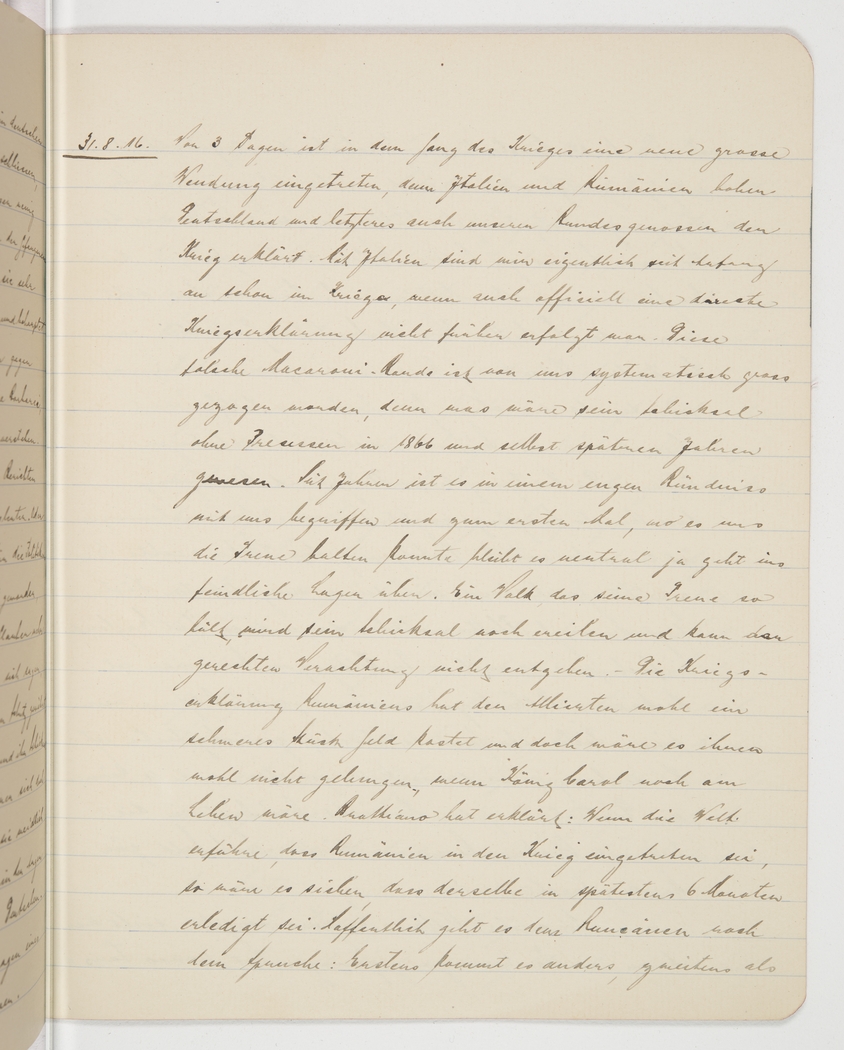 31.8.16. Vor 3 Tagen ist in dem Gang des Krieges eine neue grosse
Wendung eingetreten, denn Italien und Rumänien haben
Deutschland und letzteres auch unseren Bundesgenossen den
Krieg erklärt. Mit Italien sind wir eigentlich seit Anfang
an schon im Kriege, wenn auch officiell eine directe
Kriegserklärung nicht früher erfolgt war. Diese
falsche Macaroni-Bande ist von uns systematisch gross
gezogen worden, denn was wäre sein Schicksal
ohne Preussen in 1866 und selbst späteren Jahren
gewesen. Seit Jahren ist es in einem engen Bündniss
mit uns begriffen und zum ersten Mal, wo es uns
die Treue halten konnte bleibt es neutral ja geht ins
feindliche Lager über. Ein Volk, das seine Treue so
hält, wird sein Schicksal noch ereilen und kann der
gerechten Verachtung nicht entgehen. - Die Kriegs-
erklärung Rumäniens hat den Alliierten wohl ein
schweres Stück Geld kostet und doch wäre es ihnen
wohl nicht gelungen, wenn König Carol noch am
Leben wäre. Brattiano hat erklärt: Wenn die Welt
erführe, dass Rumänien in den Krieg eingetreten sei,
so wäre es sicher, dass derselbe in spätestens 6 Monaten
erledigt sei. Hoffentlich geht es dem Rumänen nach
dem Spruche: Erstens kommt es anders, zweitens als